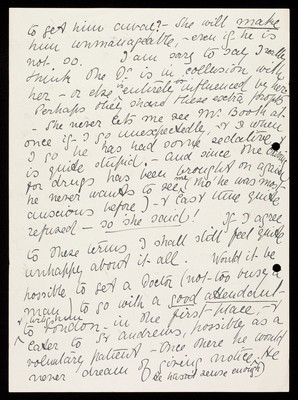 to get him away? - She will make
him unmanageable, - even if he is
not so. I am sorry to say I really
think the Dr. is in collusion with
her - or else "entirely" influenced by her
Perhaps they share these extra profits
- She never lets me see Mr. Booth at-
once if I go unexpectedly, - & when
I go he has had some sedative &
is quite stupid. - and since the
for drugs has been brought on again
he never wants to see me (tho' he was most
anxious before) - & last time quite
refused - so she said! If I agree
to these terms I shall still feel quite
unhappy about it all. Would it be
possible to get a Doctor (not too busy a
man) to go with a good attendant
& with him to London - in the first place, - &
later to St Andrews, possibly as a
voluntary patient - Once there he would
never dream of giving notice. He
(he hasn't sense enough)